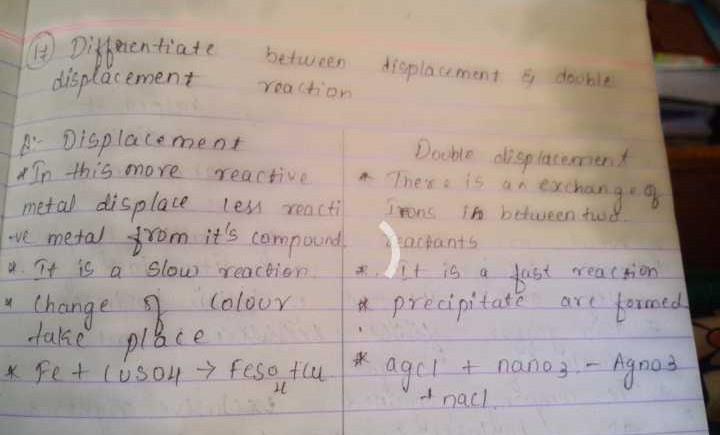 17 Diffrentiate between displacement & double
displacement reaction
A:- Displacement
* In this more reactive
metal displace less reacti
-ve metal from it's compound.
* It is a slow reaction.
* Change of colour
take place
* Fe + CuSO4 → FeSO4 + Cu
Double displacement
* There is an exchange of
Irons in between two
reactants
* It is a fast reaction
* precipitate are formed
.
* agcl + nano3 - Agno3
+ nacl.